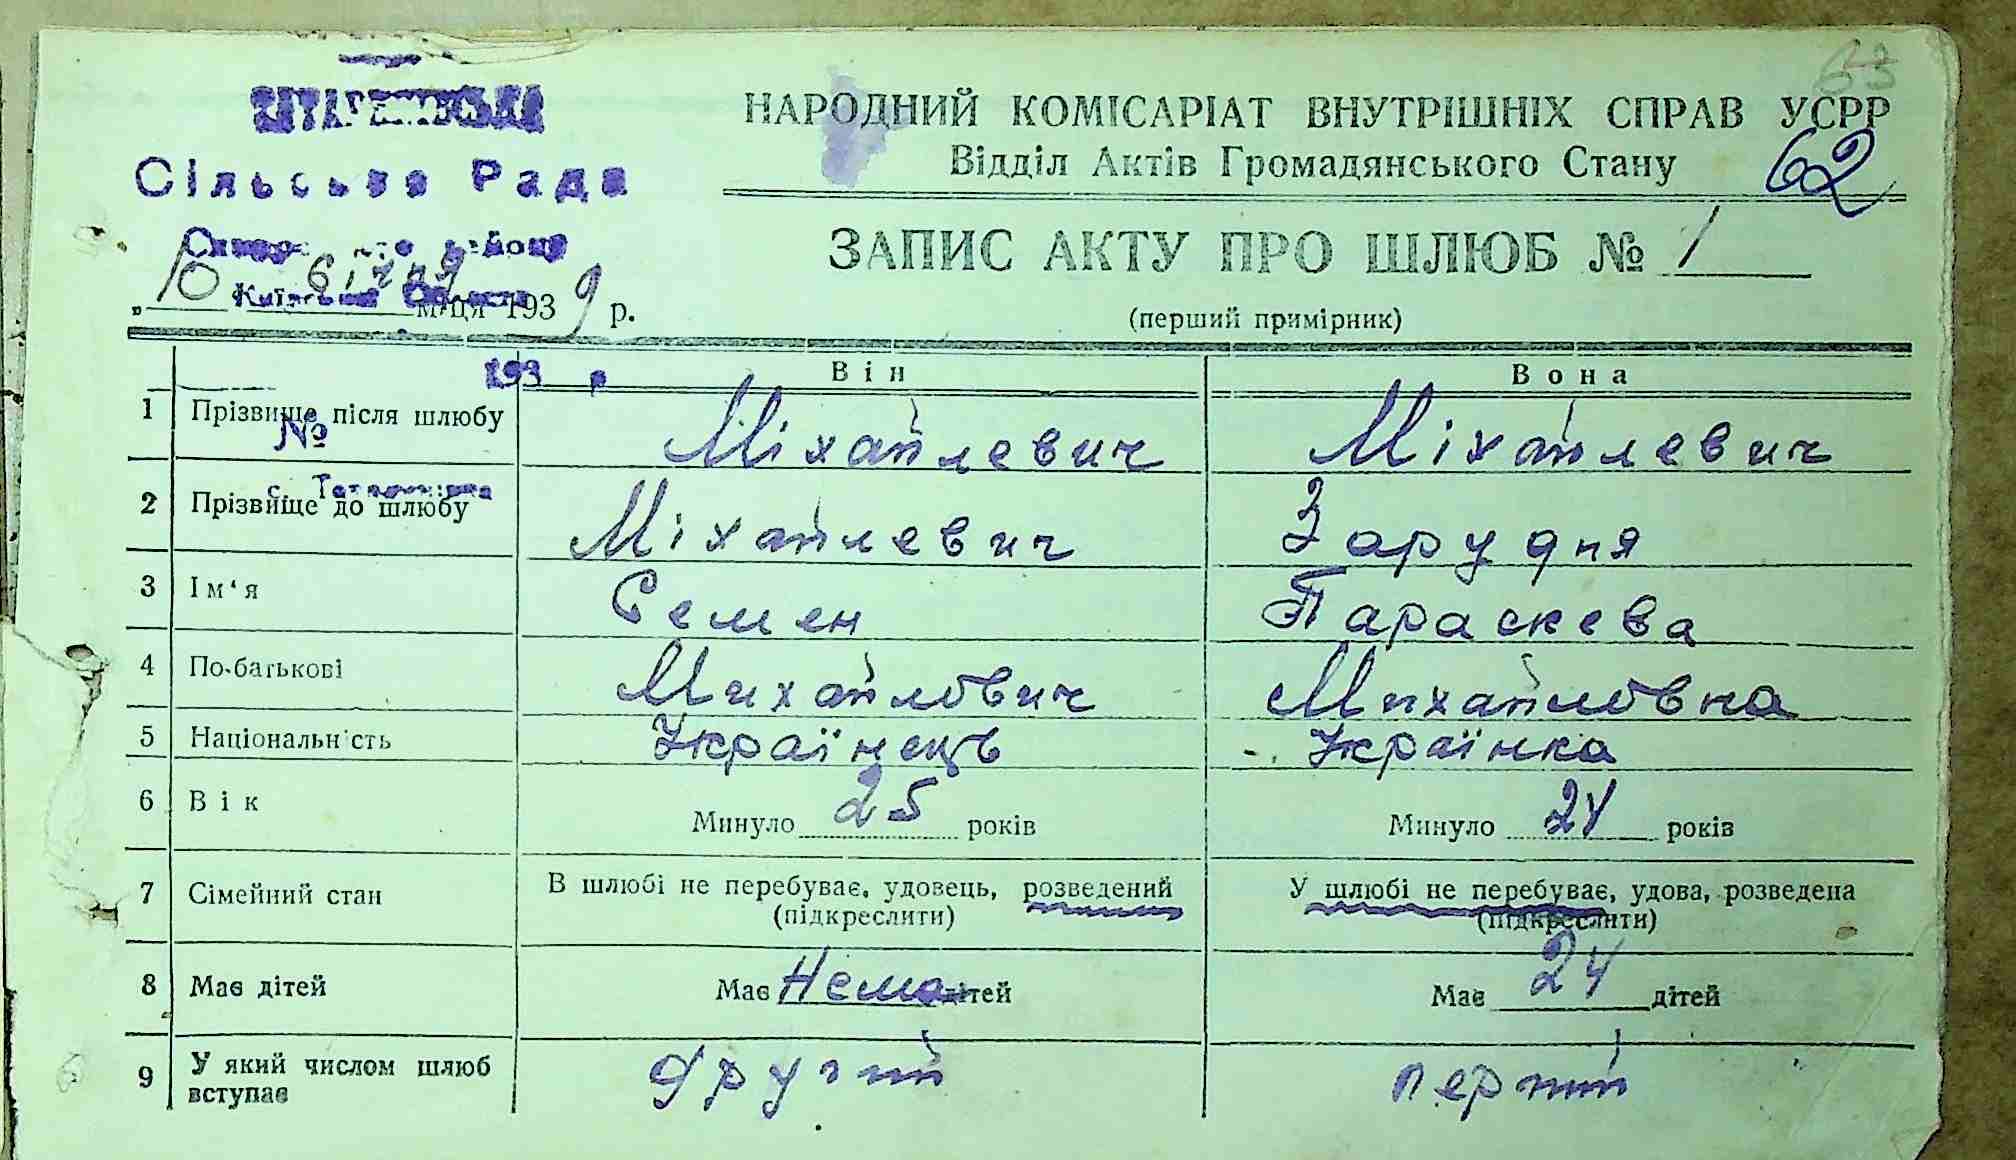 63
НАРОДНИЙ КОМІСАРІАТ ВНУТРІШНІХ СПРАВ УСРР
Відділ Актів Громадянського Стану
62
Сільська Рада
ЗАПИС АКТУ ПРО ШЛЮБ № 1
(перший примірник)
Київської Області
„10 січня м-ця 1939 р.
193 р
Він Вона
1 Прізвище після шлюбу Міхайлевич Міхайлевич
№
2 Прізвище до шлюбу Міхайлевич Зарудня
3 Ім'я Семен Параскева
4 По-батькові Михайлович Михайловна
5 Національність Українець Українка
6 Вік Минуло 25 років Минуло 24 років
7 Сімейний стан В шлюбі не перебуває, удовець, розведений У шлюбі не перебуває, удова, розведена
(підкреслити) (підкреслити)
8 Має дітей Має Нема дітей Має 24 дітей
9 У який числом шлюб вступає другий перший